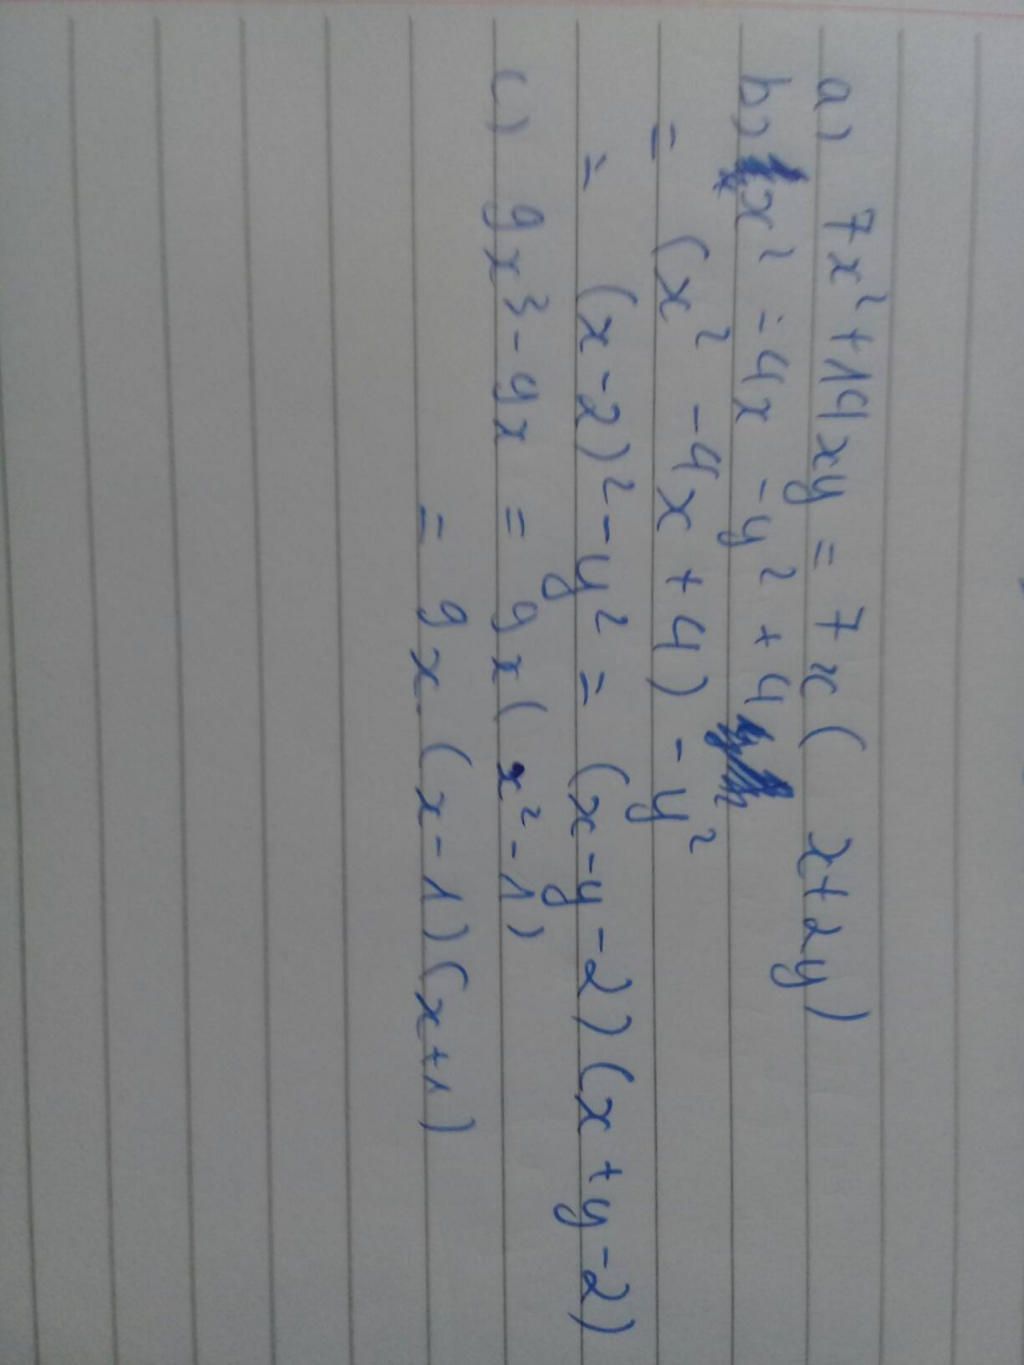 a) 7x² + 14xy = 7x( x+2y)
b) x² - 4x - y² + 4
= (x² - 4x + 4) - y²
= (x-2)² - y² = (x-y-2)(x+y-2)
c) 9x³ - 9x = 9x(x² - 1)
= 9x.(x-1)(x+1)